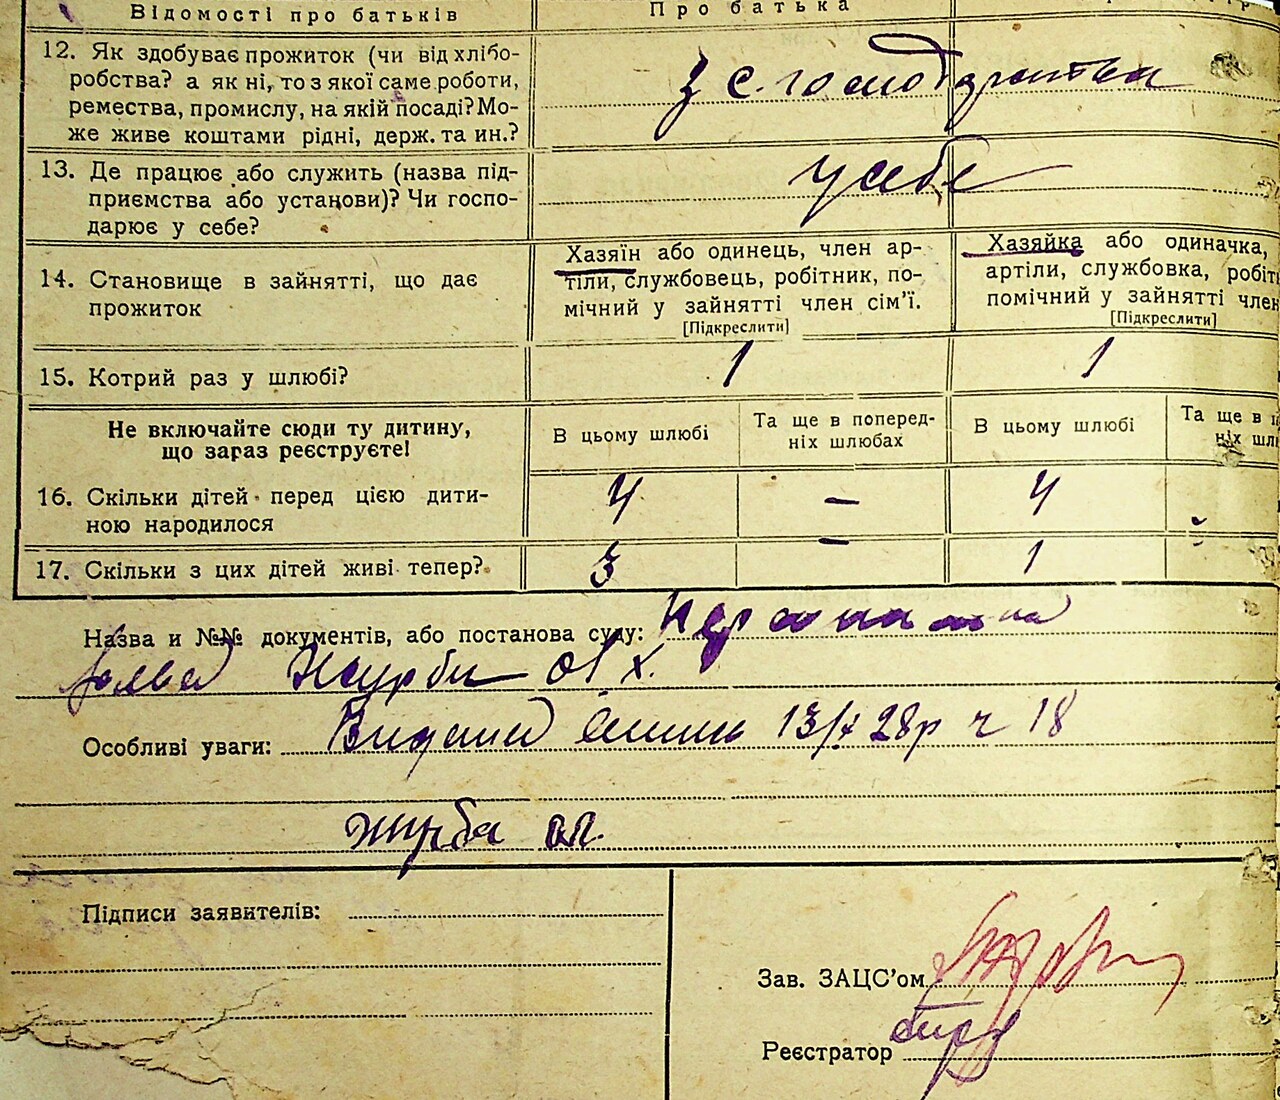 Відомості про батьків
Про батька
12. Як здобуває прожиток (чи від хлібо-
робства? а як ні, то з якої саме роботи,
ремества, промислу, на якій посаді? Мо-
же живе коштами рідні, держ. та ин.?
з с. господарства
13. Де працює або служить (назва під-
приємства або установи)? Чи госпо-
дарює у себе?
у себе
14. Становище в зайнятті, що дає
прожиток
Хазяїн або одинець, член ар-
тіли, службовець, робітник, по-
мічний у зайнятті член сім'ї.
[Підкреслити]
Хазяйка або одиначка,
артіли, службовка, робіт
помічний у зайнятті член
[Підкреслити]
15. Котрий раз у шлюбі?
1
1
Не включайте сюди ту дитину,
що зараз реєструєте!
В цьому шлюбі
Та ще в поперед-
ніх шлюбах
В цьому шлюбі
Та ще в п
ніх шлю
16. Скільки дітей перед цією дити-
ною народилося
4
–
4
17. Скільки з цих дітей живі тепер?
3
–
1
Назва и №№ документів, або постанова суду: персональна
заява Журби Ол х.
Особливі уваги: Видана виписъ 13/X 28р ч 18
Журба ол.
Підписи заявителів:
Зав. ЗАЦС'ом
Реєстратор